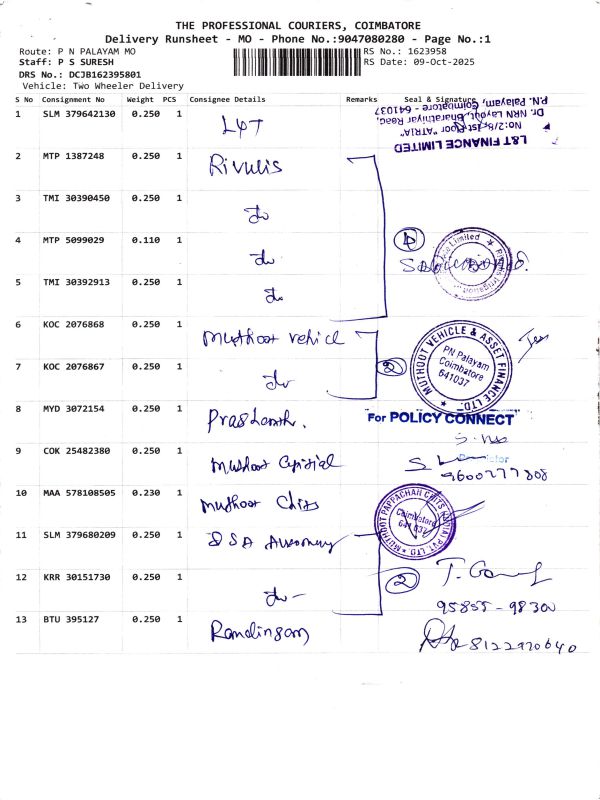 THE PROFESSIONAL COURIERS, COIMBATORE
Delivery Runsheet - MO - Phone No.:9047080280 - Page No.:1
Route: P N PALAYAM MO
RS No.: 1623958
Staff: P S SURESH
RS Date: 09-Oct-2025
DRS No.: DCJB162395801
Vehicle: Two Wheeler Delivery
S No Consignment No Weight PCS Consignee Details Remarks Seal & Signature
1 SLM 379642130 0.250 1 L&T
L&T FINANCE LIMITED
No:2/8, 1st Floor "ATRIA"
Dr. NRN Layout, Bharathiyar Road,
P.N. Palayam, Coimbatore - 641037
2 MTP 1387248 0.250 1 Rivulis
3 TMI 30390450 0.250 1 do
4 MTP 5099029 0.110 1 do
4
Limited
5 TMI 30392913 0.250 1 do
6 KOC 2076868 0.250 1 Muthoot vehicle
MUTHOOT VEHICLE & ASSET FINANCE LTD.
PN Palayam
Coimbatore
641037
7 KOC 2076867 0.250 1 do
2
8 MYD 3072154 0.250 1 Prashanth.
For POLICY CONNECT
9 COK 25482380 0.250 1 Muthoot Capital
9600277808
10 MAA 578108505 0.230 1 Muthoot Chits
MUTHOOT PAPPACHAN CHITS
Coimbatore
641 037
11 SLM 379680209 0.250 1
12 KRR 30151730 0.250 1 do
2
95855-98300
13 BTU 395127 0.250 1 Ramalingam
8122970640